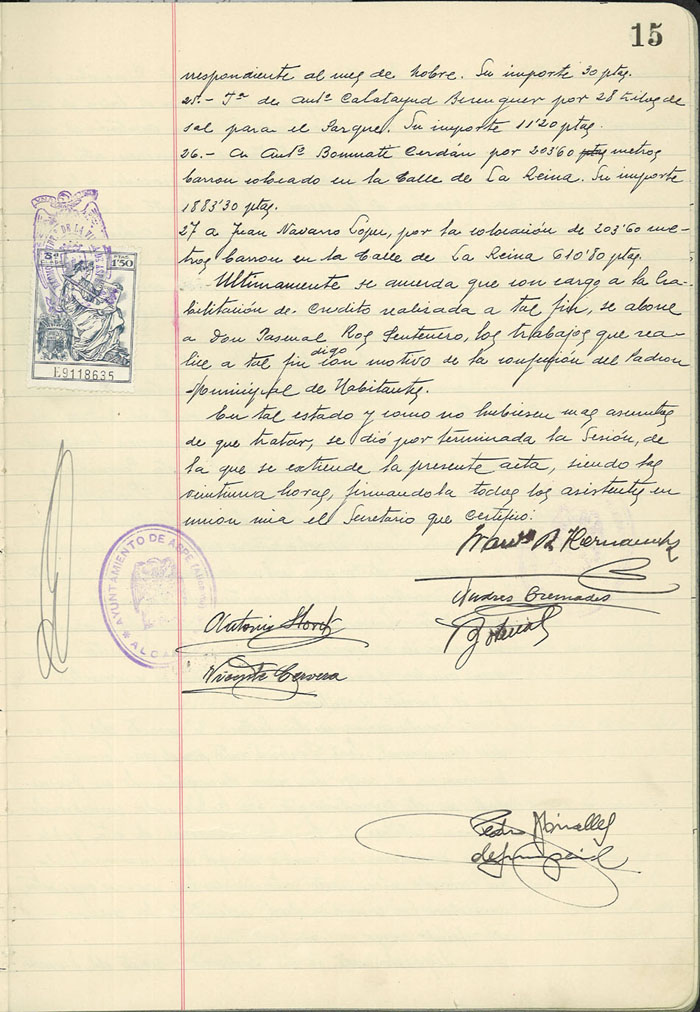 15
rrespondiente al mes de 9obre. Su importe 30 ptas.
25.- Ta de Antº Calatayud Berenguer por 28 kilos de
sal para el Parque. Su importe 11'20 ptas.
26.- A Antº Bonmatí Cerdán por 203'60 ptas metros
Carrón colocado en la Calle de La Reina. Su importe
1883'30 ptas.
27 a Juan Navarro López, por la colocación de 203'60 me-
tros Carrón en la Calle de La Reina 610'80 ptas.
Ultimamente se acuerda que con cargo a la ha-
bilitación de Credito realizada a tal fin, se abone
a Don Pascual Ros Sentenero, los trabajos que rea-
lice a tal fin digo con motivo de la confección del Padron
Municipal de Habitantes.
En tal estado y como no hubiesen mas asuntos
de que tratar, se dió por terminada la Sesión, de
la que se extiende la presente acta, siendo las
veintiuna horas, firmandola todos los asistentes en
union mia el Secretario que certifico.
R. Hernandez
Andres Cremades
Antonio
Vicente Cervera
Pedro Miralles
1'50
E9118635
AYUNTAMIENTO DE ASPE (Alicante)
ALCALDIA